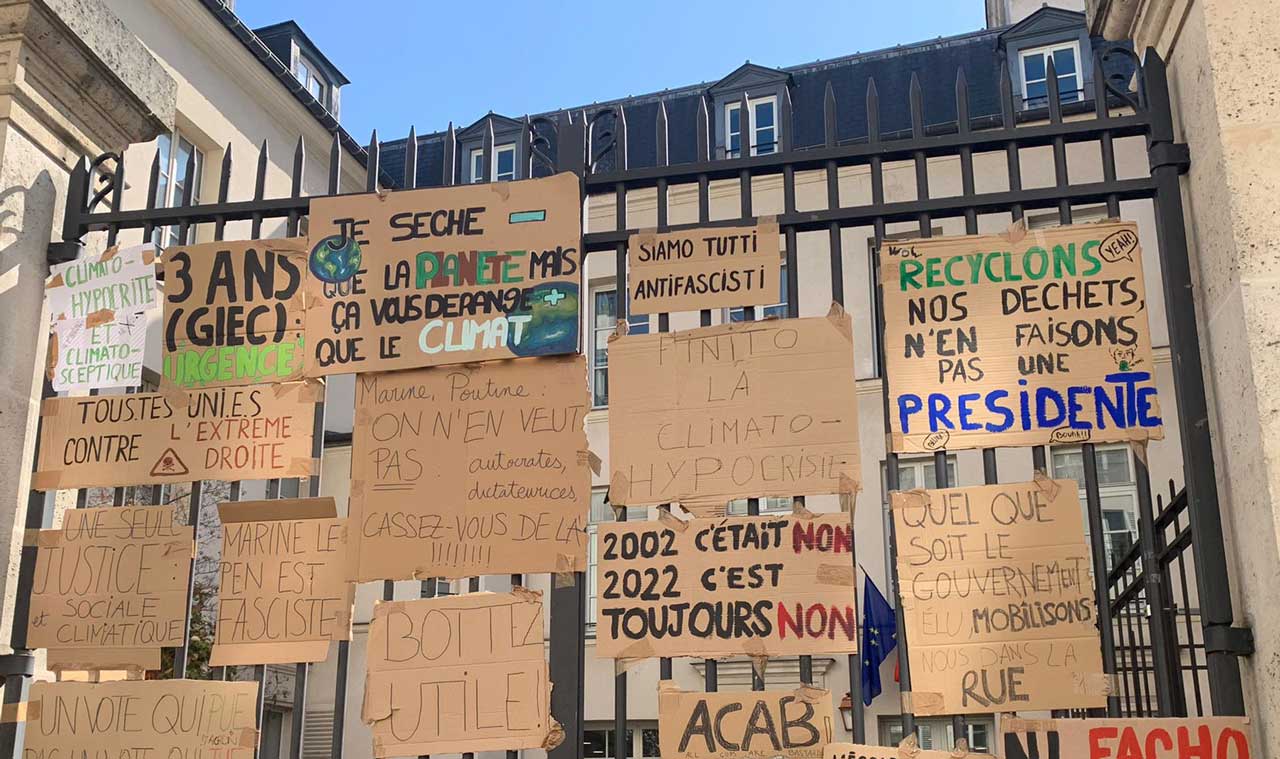 CLIMATO-
HYPOCRITE
ET
CLIMATO-
SCEPTIQUE
3 ANS
(GIEC):
URGENCE
JE SECHE -
QUE LA PLANETE MAIS
ÇA VOUS DERANGE +
QUE LE CLIMAT
SIAMO TUTTI
ANTIFASCISTI
YEAH!
RECYCLONS
NOS DECHETS,
N'EN FAISONS
PAS UNE
PRESIDENTE
BOUH!!
TOUS.TES UNI.E.S
CONTRE L'EXTREME
DROITE
Marine, Poutine :
ON N'EN VEUT
PAS : autocrates,
dictateurices,
CASSEZ-VOUS DE LA
!!!!!!!!
FINITO
LA
CLIMATO-
HYPOCRISIE
UNE SEULE
JUSTICE :
SOCIALE
et CLIMATIQUE
MARINE LE
PEN EST
FASCISTE
2002 C'ÉTAIT NON
2022 C'EST
TOUJOURS NON
QUEL QUE
SOIT LE
GOUVERNEMENT
ELU MOBILISONS
NOUS DANS LA
RUE
BOTTEZ
UTILE
UN VOTE QUI PUE
PAS UN VOTE QUI TUE
ACAB
ALL COPS ARE BASTARDS
NI FACHO